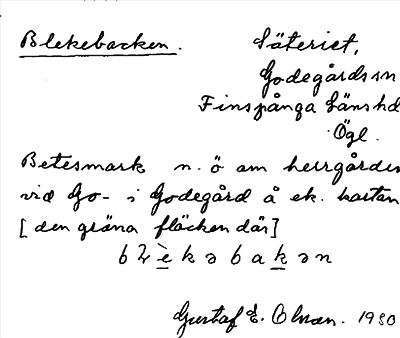 Blekebacken. Säteriet,
Godegårds sn
Finspånga länshd
Ögl.
Betesmark n. ö om herrgården
vid Go- i Godegård å ek. kartan
[den gröna fläcken där]
Gustaf E. 1930